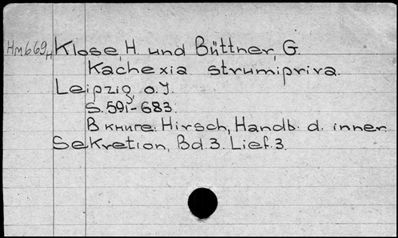 Hm669H Klose, H. und Büttner, G.
Kachexia strumipriva.
Leipzig, o.J.
S. 591-683.
В книге: Hirsch, Handb. d. inner
Sekretion, Bd 3. Lief. 3.